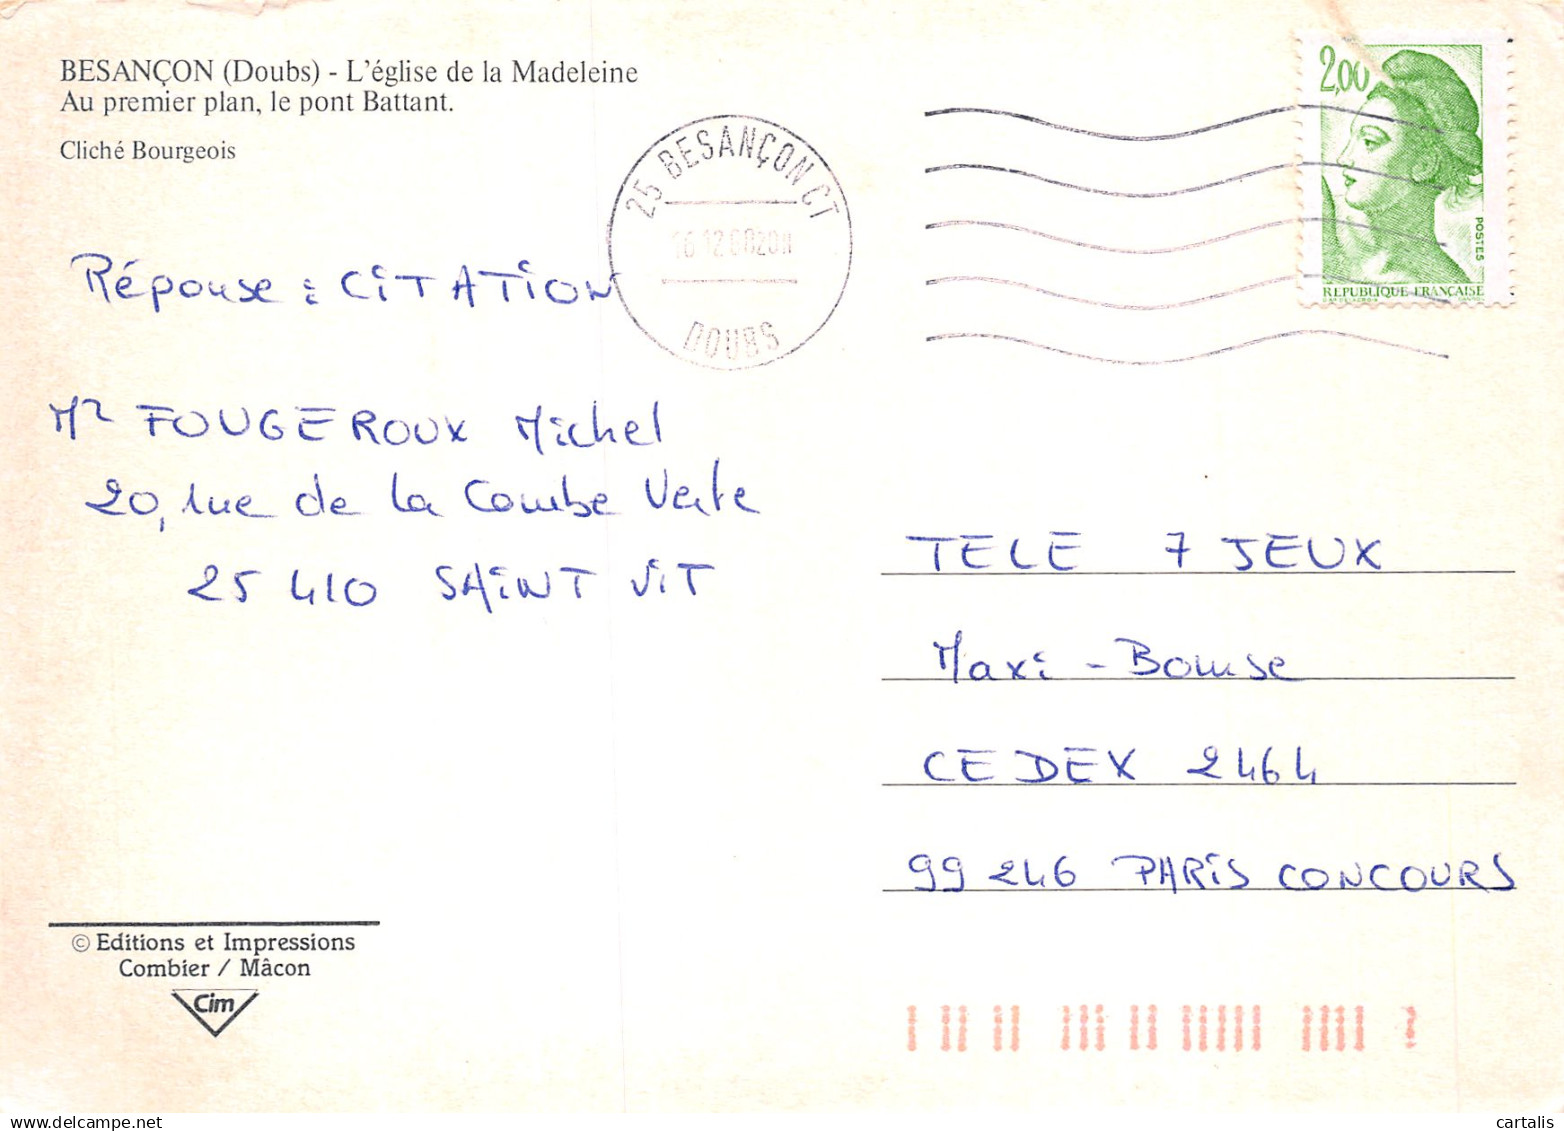 BESANÇON (Doubs) - L'église de la Madeleine
Au premier plan, le pont Battant.
Cliché Bourgeois
25 BESANÇON CT
DOUBS
2,00
POSTES
REPUBLIQUE FRANÇAISE
Réponse : CITATION
Mr FOUGEROUX Michel
20, rue de la Combe Verte
25 410 SAINT ViT
TELE 7 JEUX
Maxi - Bourse
CEDEX 2464
99 246 PARIS CONCOURS
© Editions et Impressions
Combier / Mâcon
Cim
cartalis